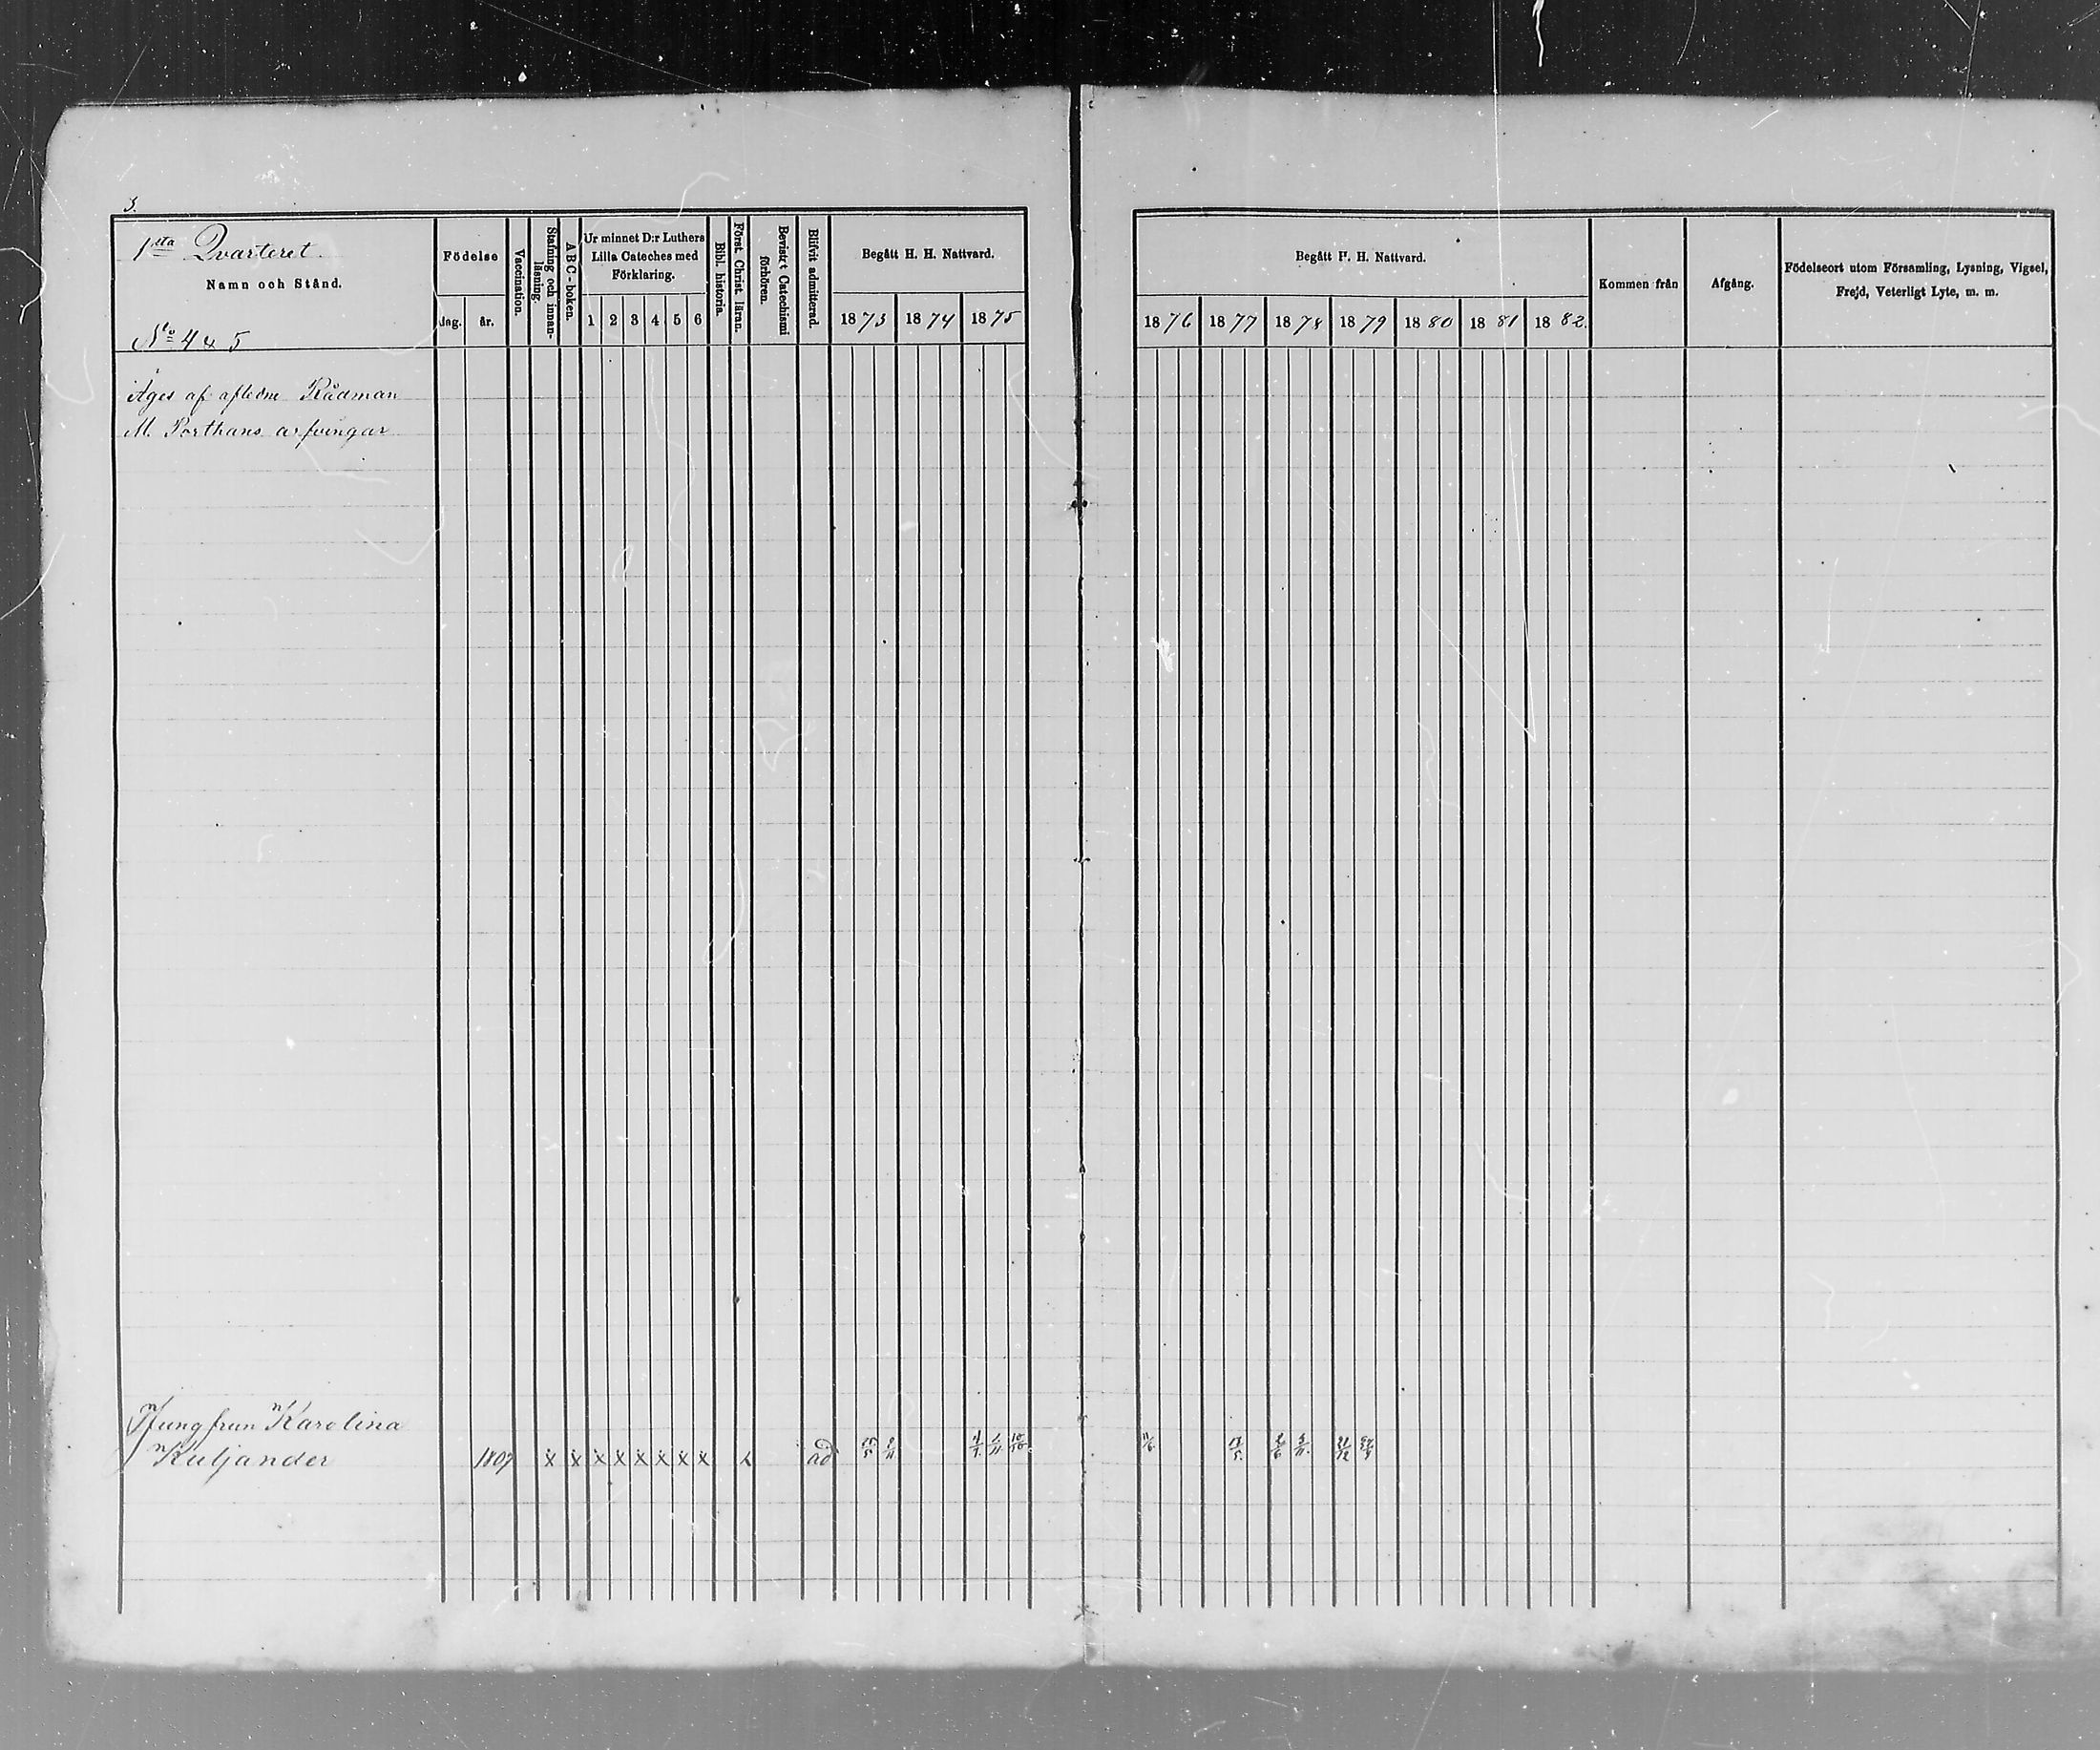 3.
1sta Qvarteret.
Namn och Stånd.
No 4 & 5
Födelse
dag. år.
Vaccination.
Stafning och innan-
läsning.
ABC-boken.
Ur minnet D:r Luthers
Lilla Cateches med
Förklaring.
1 2 3 4 5 6
Bibl. historia.
Först. Christ. läran.
Bevistat Catechismi
förhören.
Blifvit admitterad.
Begått H. H. Nattvard.
1873 1874 1875
Begått H. H. Nattvard.
1876 1877 1878 1879 1880 1881 1882.
Kommen från
Afgång.
Födelseort utom Församling, Lysning, Vigsel,
Frejd, Veterligt Lyte, m. m.
Äges af aflidne Rådman
M. Porthans arfvingar
Jungfrun Karolina
Kuljander 1809 x x x x x x x x x ad